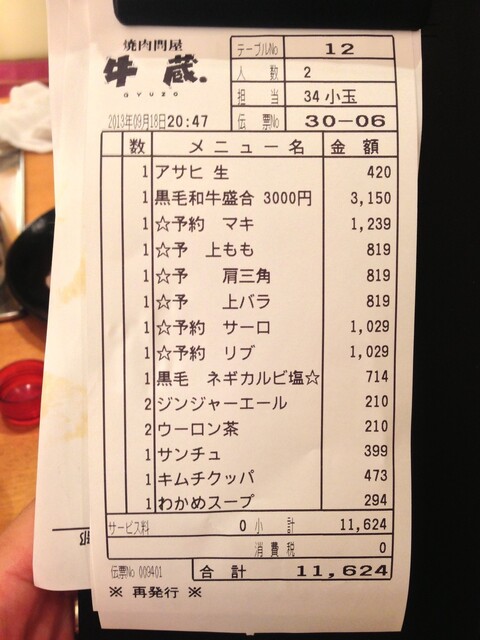 焼肉問屋
牛蔵.
GYUZO
テーブルNo 12
人数 2
担当 34 小玉
2013年09月18日20:47 伝票No 30-06
数 メニュー名 金額
1 アサヒ 生 420
1 黒毛和牛盛合 3000円 3,150
1 ☆予約 マキ 1,239
1 ☆予 上もも 819
1 ☆予 肩三角 819
1 ☆予 上バラ 819
1 ☆予約 サーロ 1,029
1 ☆予約 リブ 1,029
1 黒毛 ネギカルビ塩☆ 714
2 ジンジャーエール 210
2 ウーロン茶 210
1 サンチュ 399
1 キムチクッパ 473
1 わかめスープ 294
サービス料 0 小計 11,624
消費税 0
伝票No 003401 合計 11,624
※ 再発行 ※